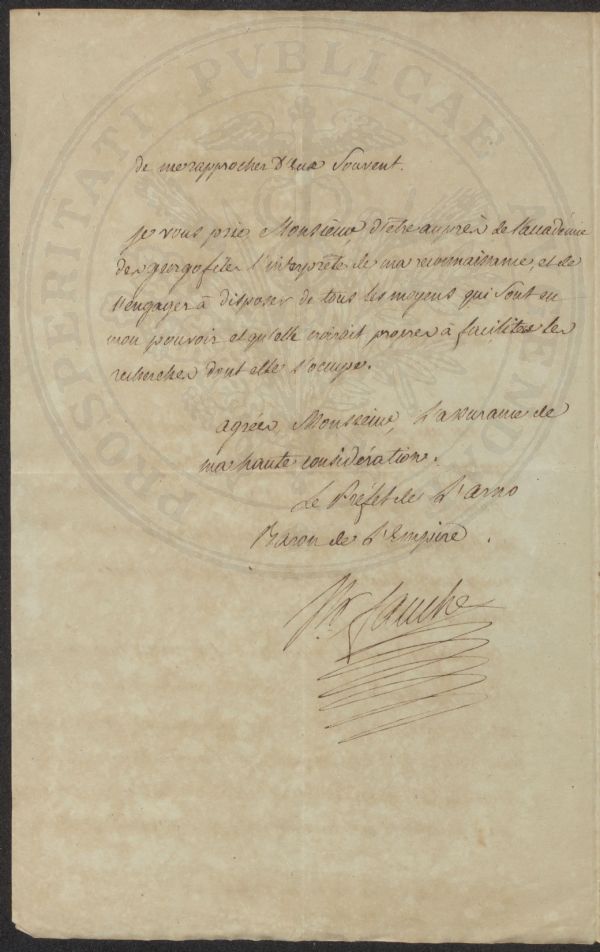 PROSPERITATI PUBLICAE AUGENDAE
de me rapprocher d'eux souvent.
je vous prie Monsieur, d'être auprès de l'académie
des georgofiles l'interprète de ma reconnaissance, et de
l'engager à disposer de tous les moyens qui sont en
mon pouvoir et qu'elle croirait propres à faciliter les
recherches dont elle s'occupe.
agréez, Monsieur, l'assurance de
ma haute considération.
Le Préfet de l'Arno
Baron de l'Empire.
fauche